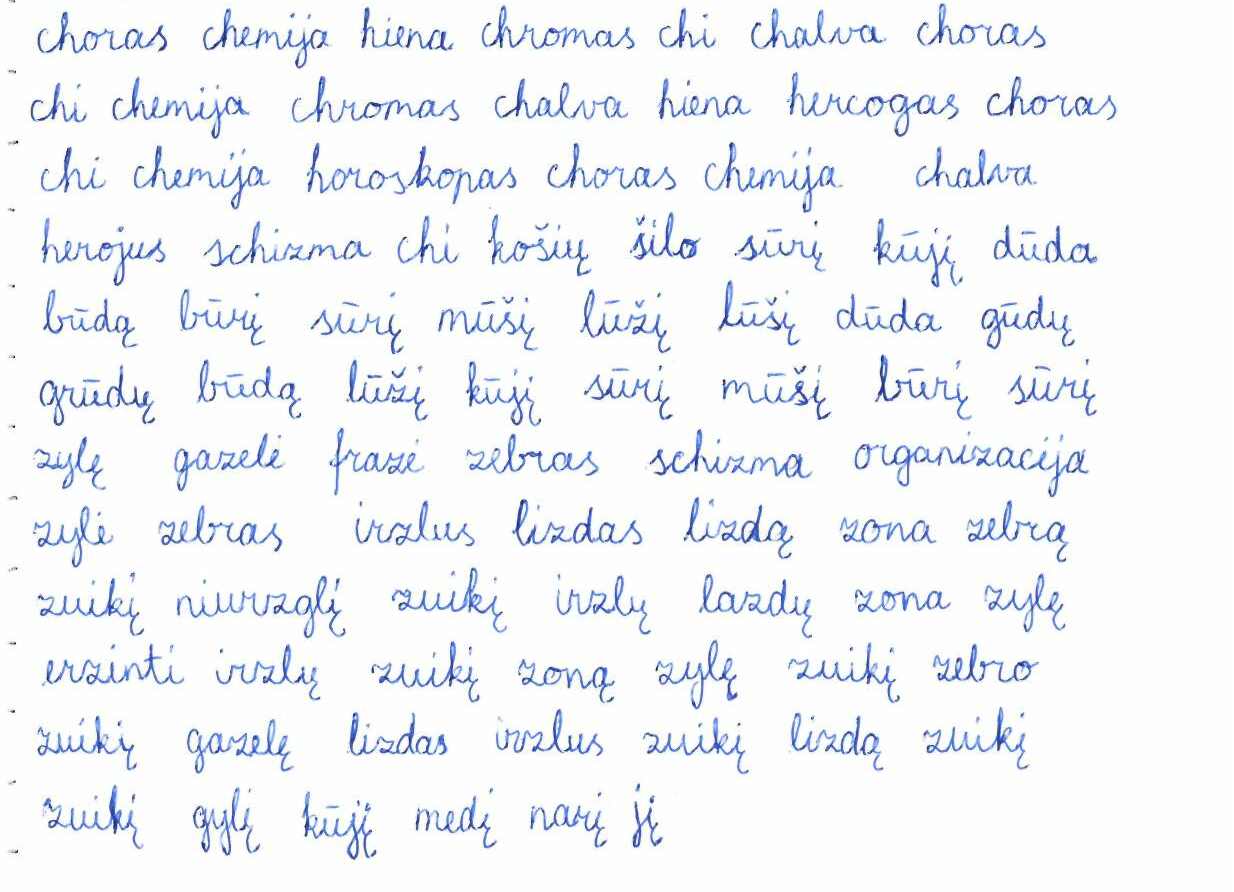 choras chemija hiena chromas chi chalva choras
chi chemija chromas chalva hiena hercogas choras
chi chemija horoskopas choras chemija chalva
herojus schizma chi košių šilo sūrį kūjį dūda
būdą būrį sūrį mūšį lūžį lūšį dūda gūdų
grūdų būdą lūžį kūjį sūrį mūšį būrį sūrį
zylę gazelė frazė zebras schizma organizacija
zylė zebras irzlus lizdas lizdą zona zebrą
zuikį niurzglį zuikį irzlų lazdų zona zylę
erzinti irzlų zuikį zoną zylę zuikį zebro
zuikių gazelę lizdas irzlus zuikį lizdą zuikį
zuikį gylį kūjį medį narį jį